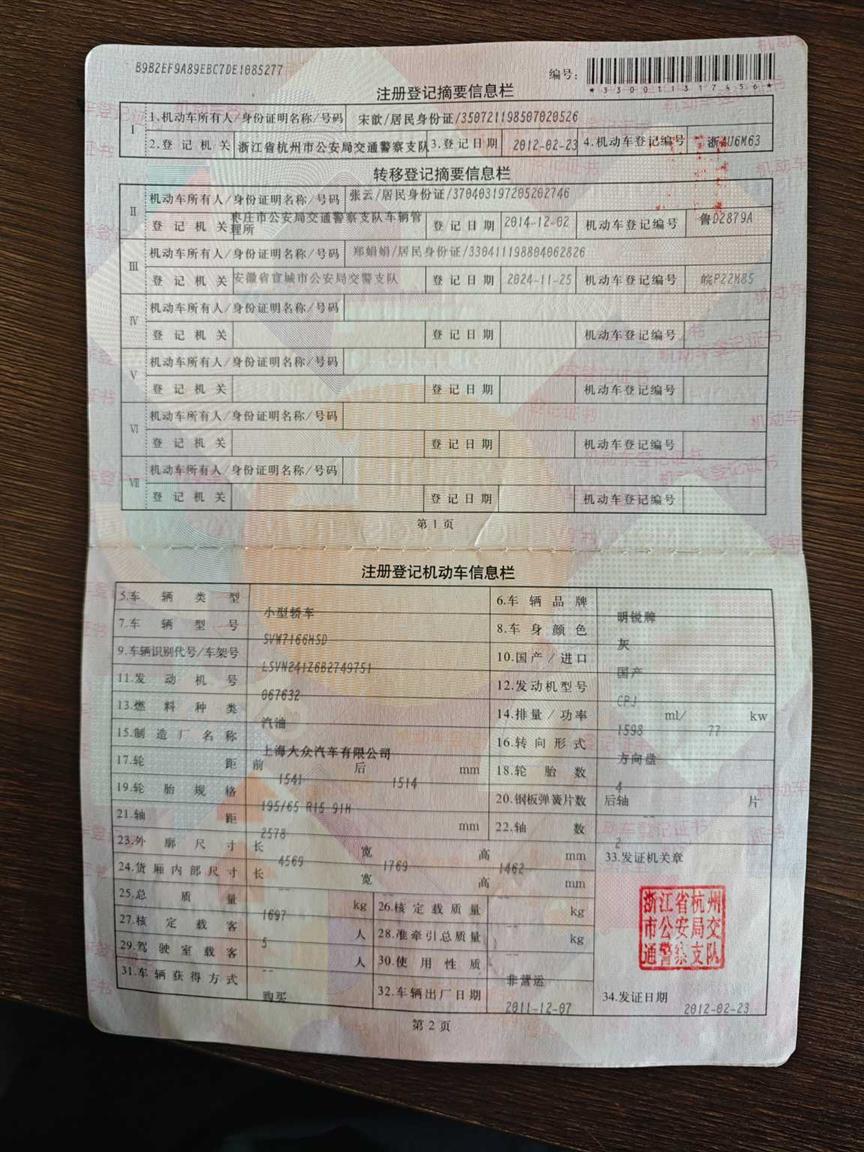 B9B2EF9A89EBC7DE1085277
编号:
*330011317456*
注册登记摘要信息栏
Ⅰ 1.机动车所有人/身份证明名称/号码 宋歆/居民身份证/350721198507020526
2.登记机关 浙江省杭州市公安局交通警察支队 3.登记日期 2012-02-23 4.机动车登记编号 浙AU6M63
转移登记摘要信息栏
Ⅱ 机动车所有人/身份证明名称/号码 张云/居民身份证/370403197205202746
登记机关 枣庄市公安局交通警察支队车辆管理所 登记日期 2014-12-02 机动车登记编号 鲁D2879A
Ⅲ 机动车所有人/身份证明名称/号码 郑娟娟/居民身份证/330411198804062826
登记机关 安徽省宣城市公安局交警支队 登记日期 2024-11-25 机动车登记编号 皖P22M85
Ⅳ 机动车所有人/身份证明名称/号码
登记机关 登记日期 机动车登记编号
Ⅴ 机动车所有人/身份证明名称/号码
登记机关 登记日期 机动车登记编号
Ⅵ 机动车所有人/身份证明名称/号码
登记机关 登记日期 机动车登记编号
Ⅶ 机动车所有人/身份证明名称/号码
登记机关 登记日期 机动车登记编号
第1页
注册登记机动车信息栏
5.车辆类型 小型轿车 6.车辆品牌 明锐牌
7.车辆型号 SVW7166HSD 8.车身颜色 灰
9.车辆识别代号/车架号 LSVN241Z6B2749751 10.国产/进口 国产
11.发动机号 067632 12.发动机型号 CPJ
13.燃料种类 汽油 14.排量/功率 1598 ml/ 77 kw
15.制造厂名称 上海大众汽车有限公司 16.转向形式 方向盘
17.轮距 前 1541 后 1514 mm 18.轮胎数 4
19.轮胎规格 195/65 R15 91H 20.钢板弹簧片数 后轴 -- 片
21.轴距 2578 mm 22.轴数 2
23.外廓尺寸 长 4569 宽 1769 高 1462 mm 33.发证机关章
24.货厢内部尺寸 长 -- 宽 高 mm
25.总质量 1697 kg 26.核定载质量 -- kg
27.核定载客 5 人 28.准牵引总质量 -- kg
29.驾驶室载客 -- 人 30.使用性质 非营运
31.车辆获得方式 购买 32.车辆出厂日期 2011-12-07 34.发证日期 2012-02-23
浙江省杭州
市公安局交
通警察支队
第2页